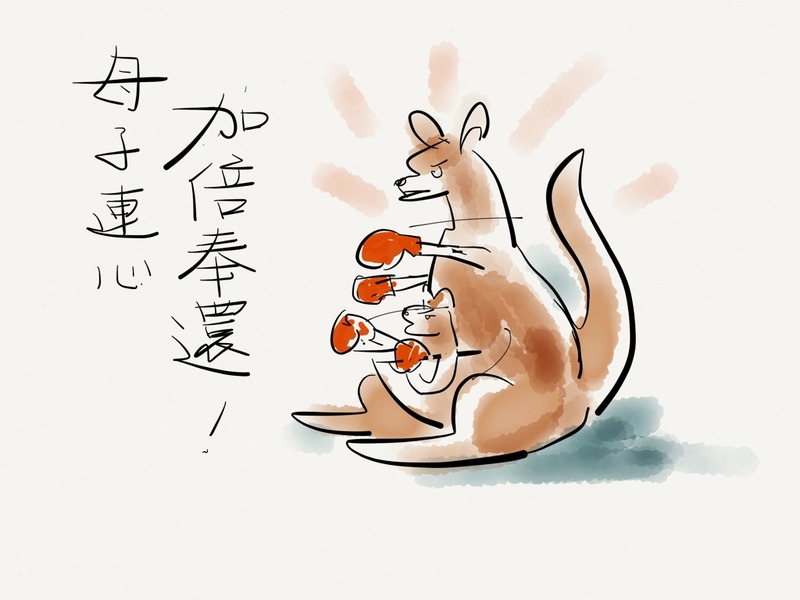 加倍奉還！
母子連心